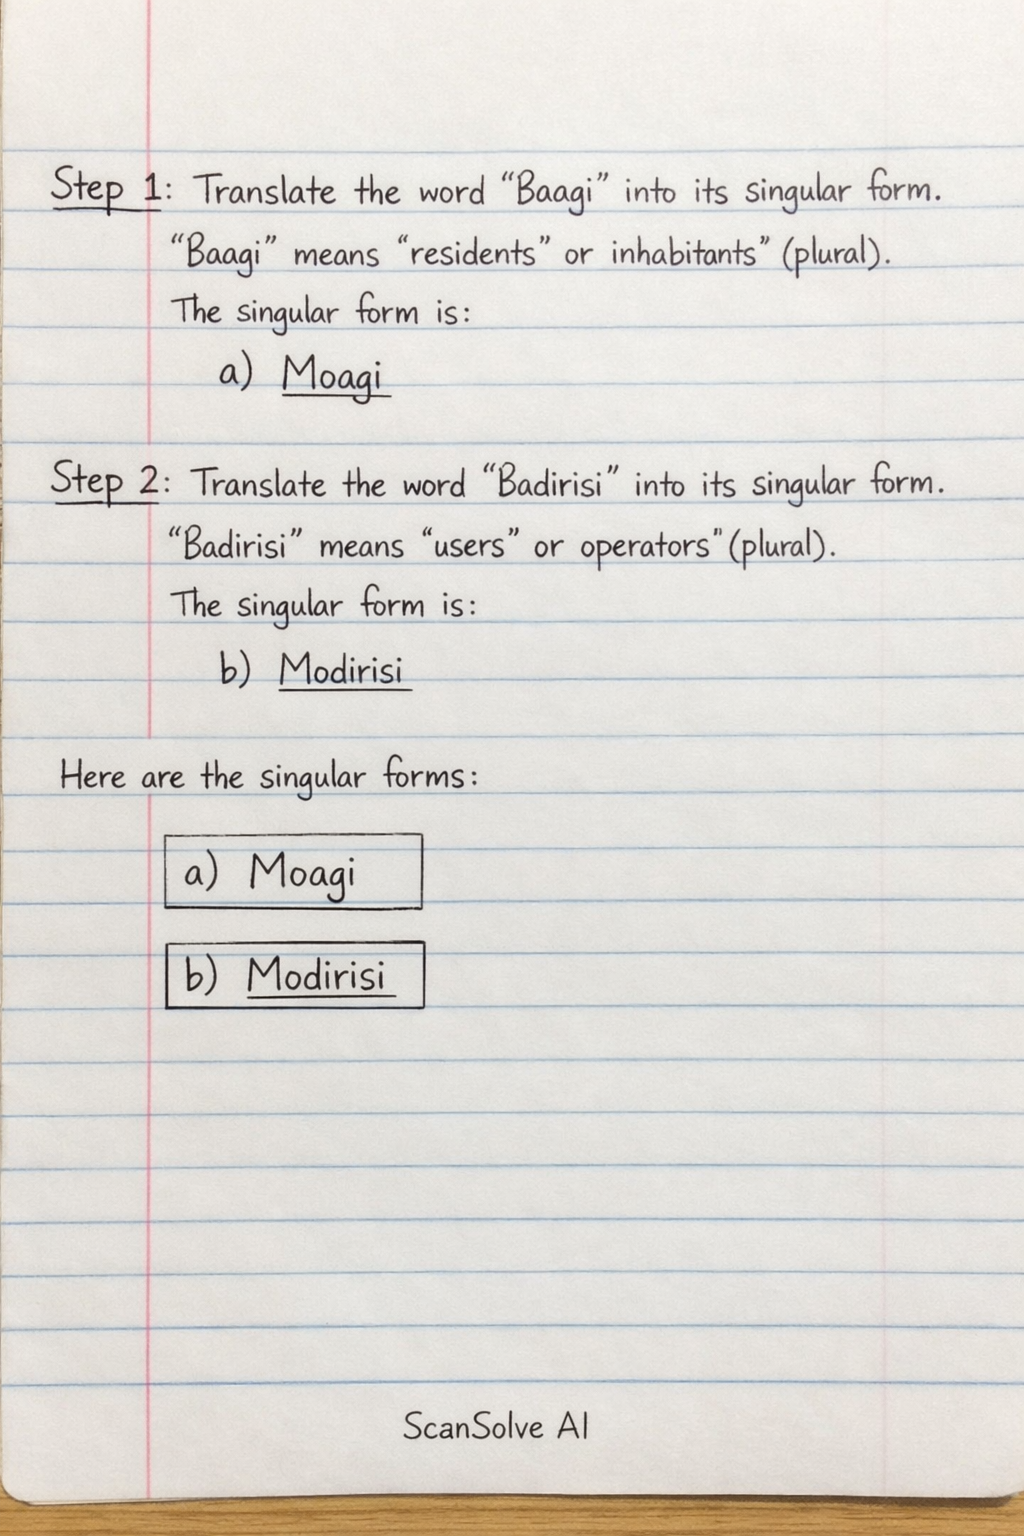 Step 1: Translate the word “Baagi” into its singular form.
“Baagi” means “residents” or inhabitants” (plural).
The singular form is:
a) Moagi
Step 2: Translate the word “Badirisi” into its singular form.
“Badirisi” means “users” or operators” (plural).
The singular form is:
b) Modirisi
Here are the singular forms:
a) Moagi
b) Modirisi
ScanSolve AI